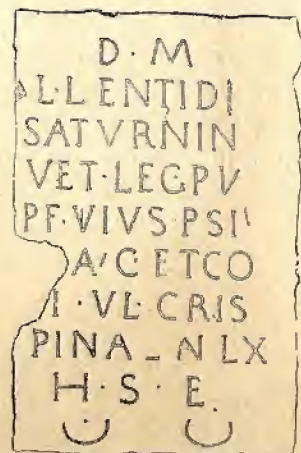 D · M
L · L ENTIDI
SATVRNIN
VET · LEG PV
PF · VIVS · PSI'
A' C ET CO
I · VL · CRIS
PINA _ N LX
H · S · E